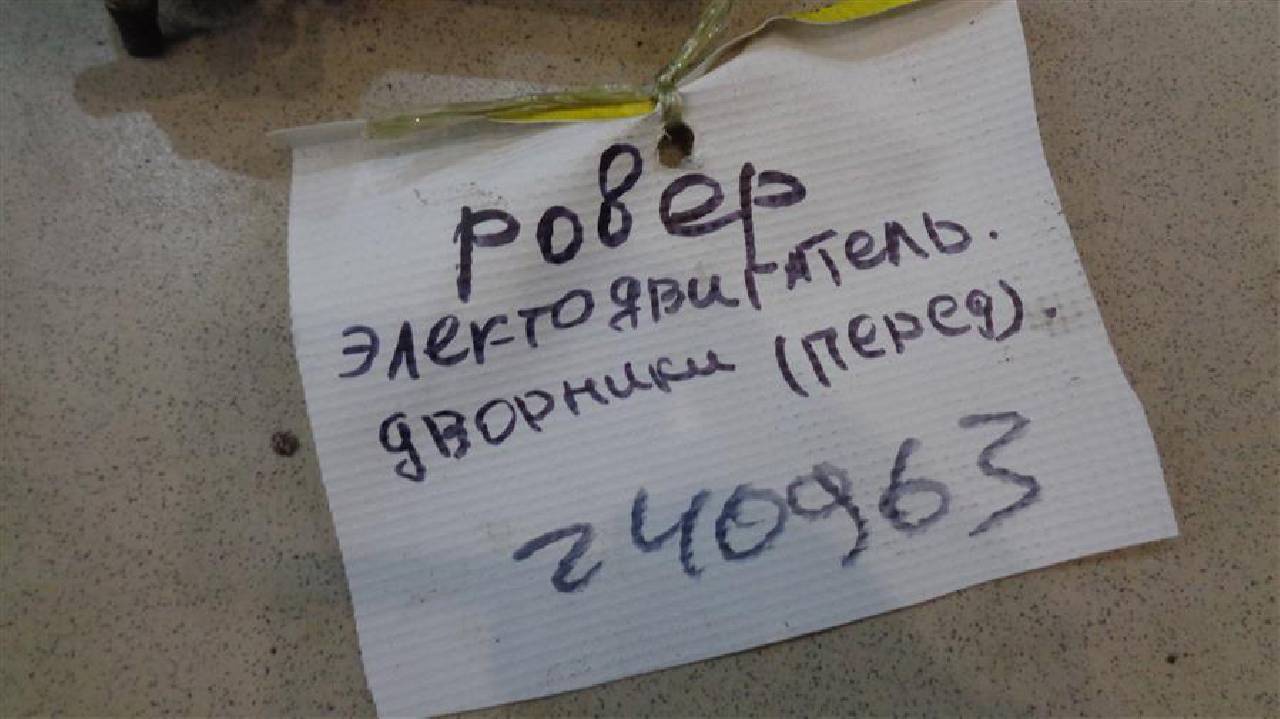 ровер
электодвигатель.
дворники (перед).
240963